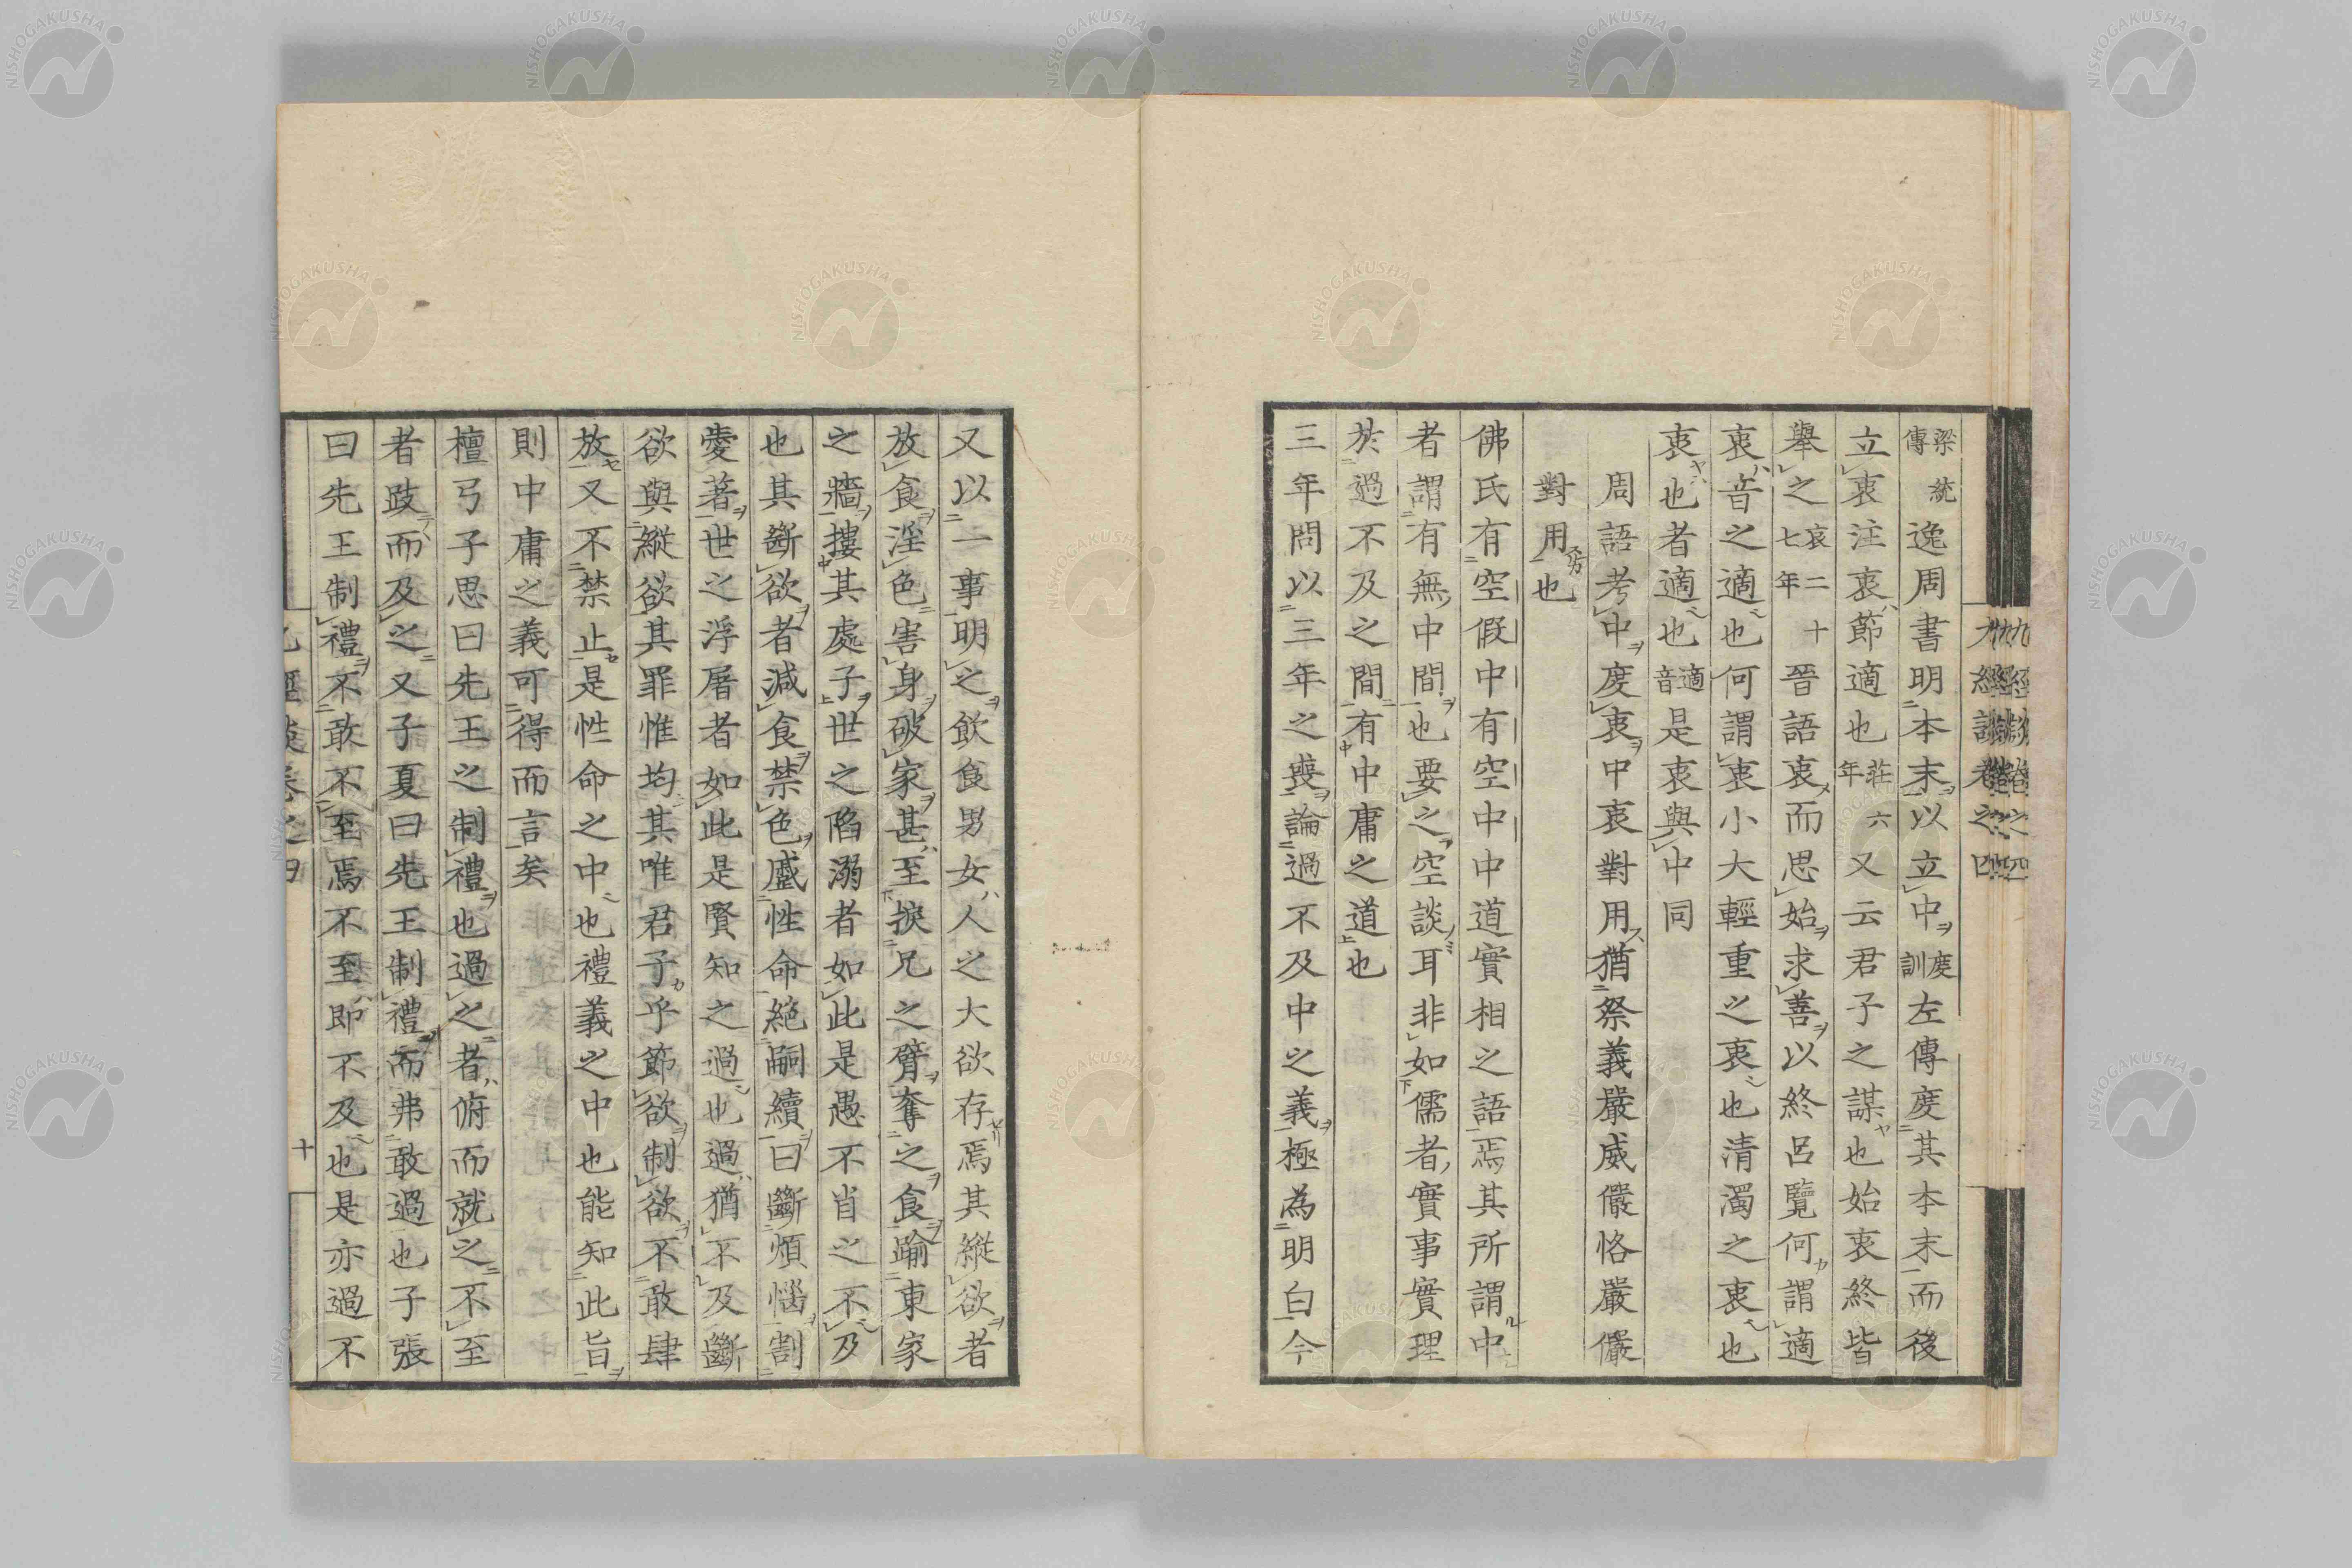 九經談卷之四
梁統傳逸周書明本末以立中度訓左傳度其本末而後
立衷注衷節適也莊六年又云君子之謀也始衷終皆
舉之哀二十七年晉語衷而思始求善以終呂覽何謂適
衷音之適也何謂衷小大輕重之衷也清濁之衷也
衷也者適也適音是衷與中同
周語考中度衷中衷對用猶祭義嚴威儼恪嚴儼
對用也
佛氏有空假中有空中中道實相之語焉其所謂中
者謂有無中間也要之空談耳非如儒者實事實理
於過不及之間有中庸之道也
三年問以三年之喪論過不及中之義極為明白今
又以二事明之飲食男女人之大欲存焉其縱欲者
放食淫色害身破家甚至捩兄之臂奪之食踰東家
之牆摟其處子世之陷溺者如此是愚不肖之不及
也其斷欲者減食禁色戚性命絕嗣續曰斷煩惱割
愛著世之浮屠者如此是賢知之過也過猶不及斷
欲與縱欲其罪惟均其唯君子乎節欲制欲不敢肆
放又不禁止是性命之中也禮義之中也能知此旨
則中庸之義可得而言矣
檀弓子思曰先王之制禮也過之者俯而就之不至
者跂而及之又子夏曰先王制禮而弗敢過也子張
曰先王制禮不敢不至焉不至即不及也是亦過不
九經談卷之四
十